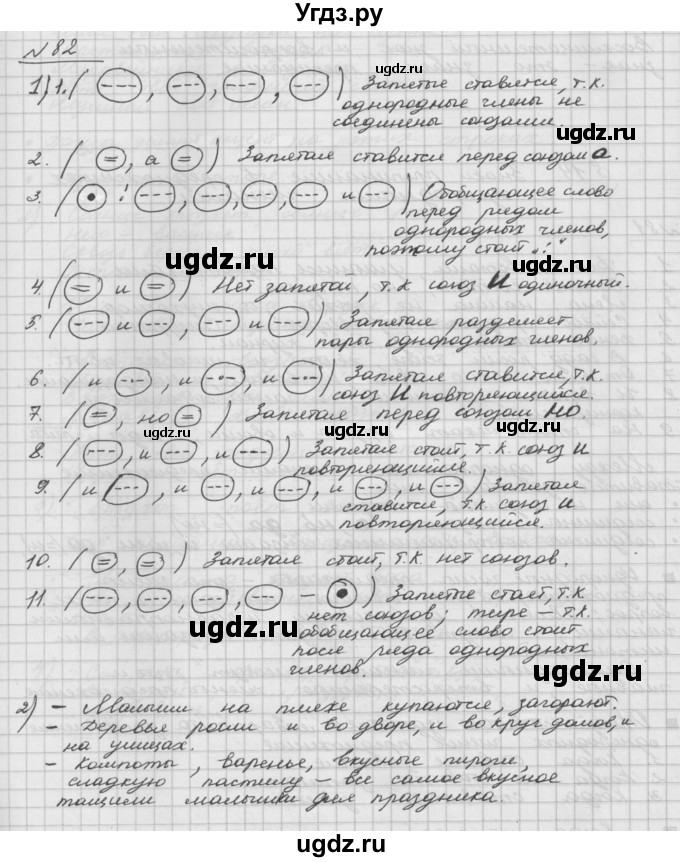 Угдз.ру
№ 82
1) 1. ( (---), (---), (---), (---) ) Запятые ставится, т.к.
однородные члены не
соединены союзами.
2. ( (=), а (=) ) Запятая ставится перед союзом а.
3. ( (•) : (---), (---), (---), (---) и (---) ) Обобщающее слово
перед рядом
однородных членов,
поэтому стоит „:“
4. ( (=) и (=) ) Нет запятой, т.к союз и одиночный.
5. ( (---) и (---), (---) и (---) ) Запятая разделяет
пары однородных членов.
6. ( и (-·-), и (-·-), и (-·-) ) Запятая ставится, т.к.
союз и повторяющийся.
7. ( (=), но (=) ) Запятая перед союзом но.
8. ( (---), и (---), и (---) ) Запятая стоит, т.к. союз и
повторяющийся.
9. ( и (---), и (---), и (---), и (---), и (---) ) Запятая
ставится, т.к союз и
повторяющийся.
10. ( (=), (=) ) Запятая стоит, т.к. нет союзов.
11. ( (---), (---), (---), (---) – (•) ) Запятые стоят, т.к
нет союзов; тире – т.к.
обобщающее слово стоит
после ряда однородных
членов.
2) – Малыши на пляже купаются, загорают.
– Деревья росли и во дворе, и вокруг домов, и
на улицах.
– Компоты, варенье, вкусные пироги,
сладкую пастилу – все самое вкусное
тащили малышки для праздника.
ugdz.ru
ugdz.ru
ugdz.ru
ugdz.ru
ugdz.ru
ugdz.ru
ugdz.ru
ugdz.ru
ugdz.ru
ugdz.ru
ugdz.ru
ugdz.ru
ugdz.ru
ugdz.ru